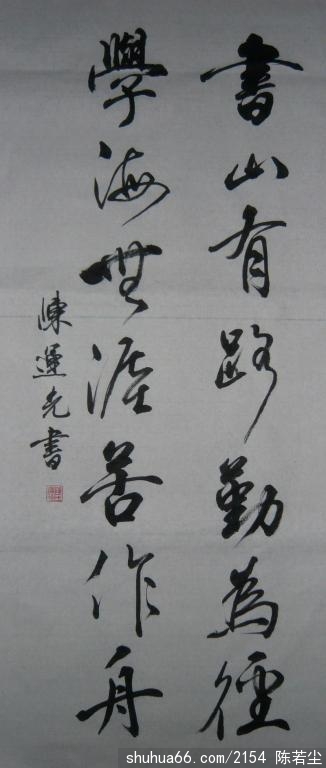 書山有路勤為徑
學海無涯苦作舟
陳運先書
shuhua66.com/2154 陈若尘